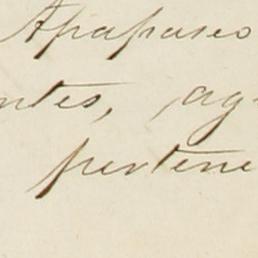 Apapaseo
ntes, ag-
pertene